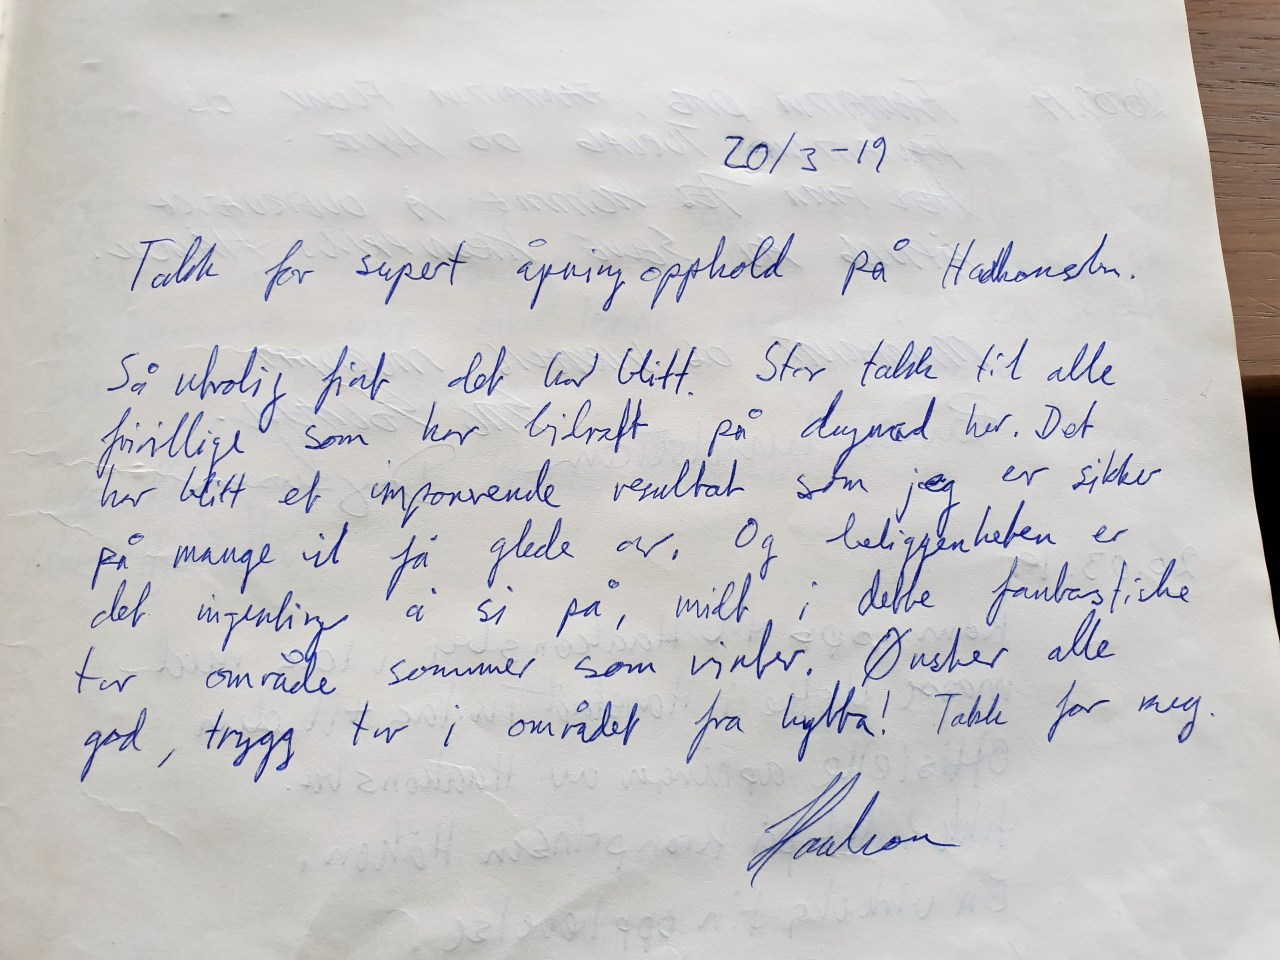 20/3-19
Takk for supert åpning opphold på Haakonsbu.
Så utrolig fint det har blitt. Stor takk til alle
frivillige som har bidratt på dugnad her. Det
har blitt et imponerende resultat som jeg er sikker
på mange vil få glede av. Og beliggenheten er
det ingenting å si på, midt i dette fantastiske
tur område sommer som vinter. Ønsker alle
god, trygg tur i området fra hytta! Takk for meg.
Haakon